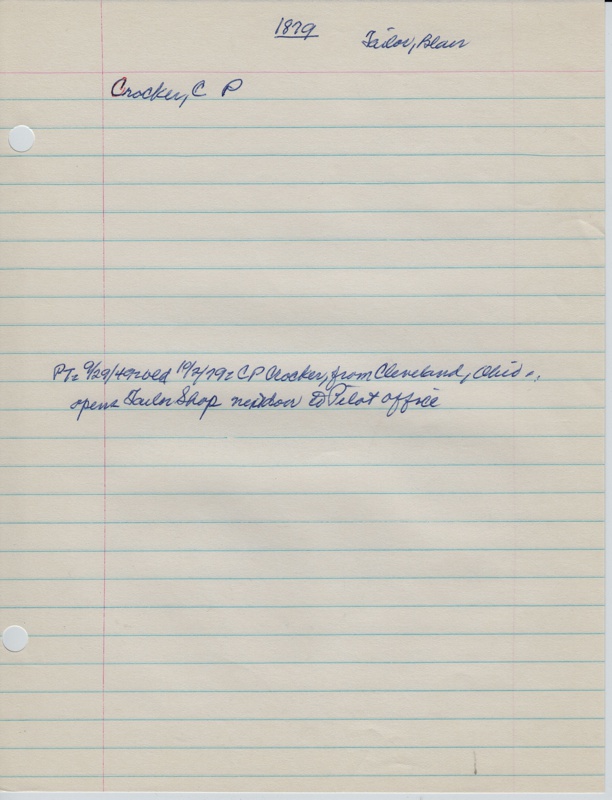 1879
Tailor, Blair
Crocker, C P
PT: 9/29/49: wed 10/2/79: C P Crocker, from Cleveland, Ohio..,
opens Tailor Shop next door to Pilot office